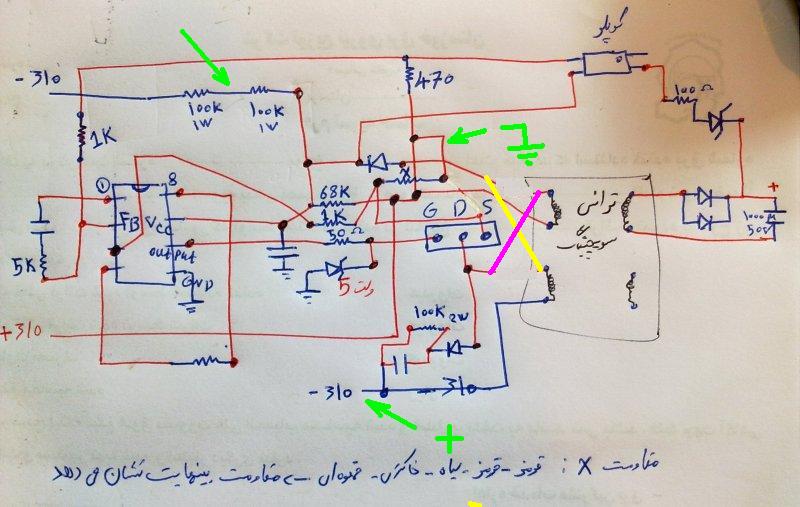 کوپلر
- 310
470
100Ω
100K
1W
100K
1W
1K
1
8
FB
Vcc
output
GND
5K
X
68K
1K
50Ω
G D S
ترانس
سوییچینگ
+
1000M
50V
5 ولت
+310
100K
2W
- 310
- 310
+
مقاومت X : قرمز - قرمز - سیاه - خاکستری - قهوه‌ای مقاومت بینهایت نشان می دهد